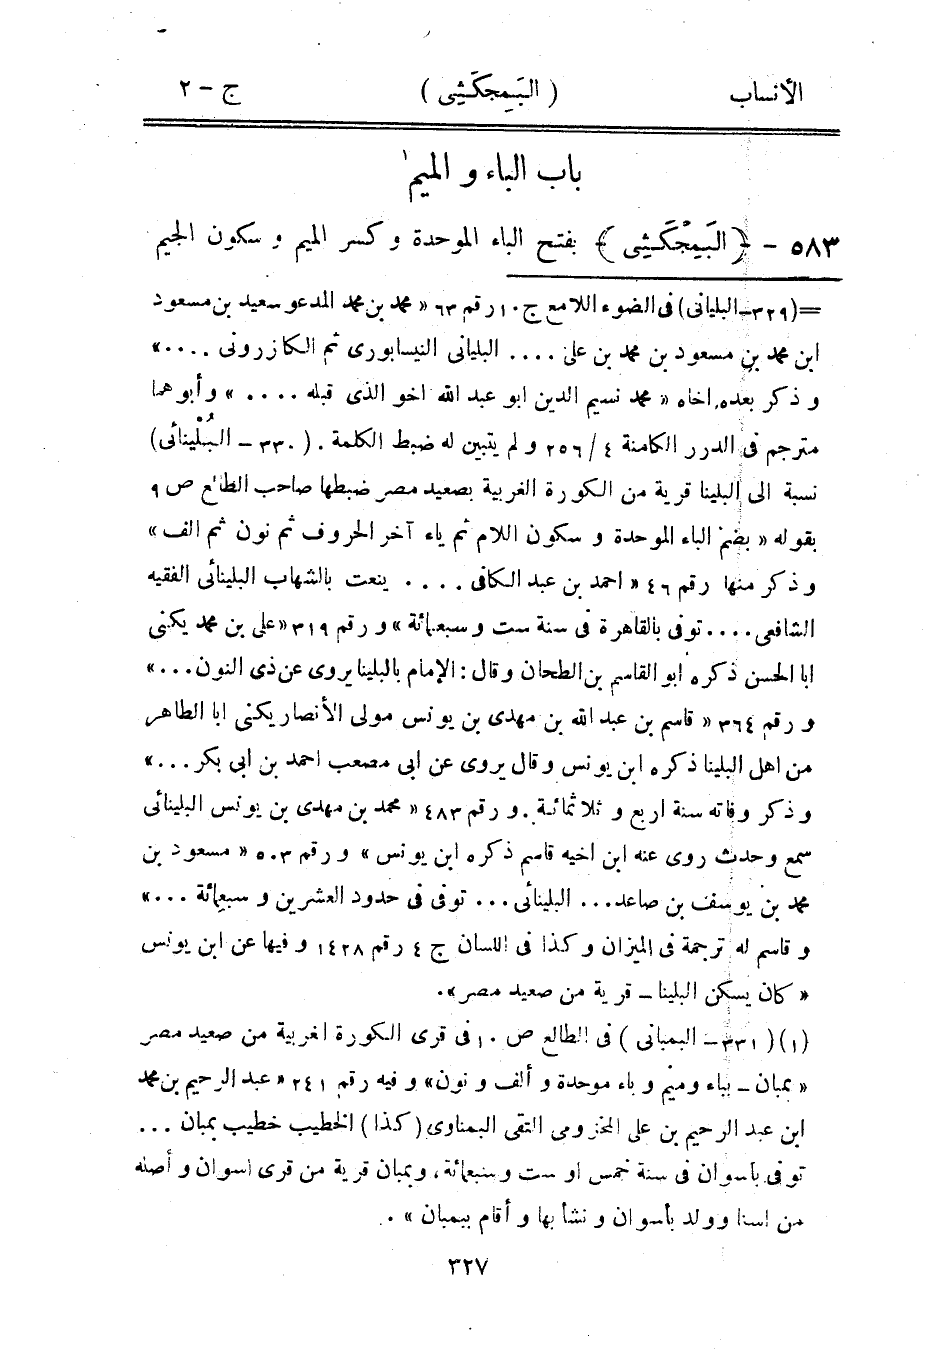 الأنساب ( البَمِجكَثى ) ج - ٢
باب الباء و الميم ١
٥٨٣ - ﴿ البَمِجْكَثى ﴾ بفتح الباء الموحدة و كسر الميم و سكون الجيم
=(٣٢٩-البليانى) فى الضوء اللامع ج ١٠ رقم ٦٣ « محمد بن محمد المدعو سعيد بن مسعود
ابن محمد بن مسعود بن محمد بن على .... البليانى النيسابورى ثم الكازرونى ....»
و ذكر بعده اخاه « محمد نسيم الدين ابو عبد الله اخو الذى قبله .... » و أبو هما
مترجم فى الدرر الكامنة ٤ / ٢٥٦ و لم يتبين له ضبط الكلمة . ( ٣٣٠ - البُلْينائى)
نسبة الى البلينا قرية من الكورة الغربية بصعيد مصر ضبطها صاحب الطالع ص ٩
بقوله « بضم الباء الموحدة و سكون اللام ثم ياء آخر الحروف ثم نون ثم الف »
و ذكر منها رقم ٤٦ « احمد بن عبد الكافى .... ينعت بالشهاب البلينائى الفقيه
الشافعى .... توفى بالقاهرة فى سنة ست و سبعمائة » و رقم ٣١٩ «على بن محمد يكنى
ابا الحسن ذكره ابو القاسم بن الطحان و قال : الإمام بالبلينا يروى عن ذى النون ...»
و رقم ٣٦٤ « قاسم بن عبد الله بن مهدى بن يونس مولى الأنصار يكنى ابا الطاهر
من اهل البلينا ذكره ابن يونس و قال يروى عن ابى مصعب احمد بن ابى بكر ...»
و ذكر وفاته سنة اربع و ثلاثمائة . و رقم ٤٨٣ « محمد بن مهدى بن يونس البلينائى
سمع و حدث روى عنه ابن اخيه قاسم ذكره ابن يونس » و رقم ٥٠٣ « مسعود بن
محمد بن يوسف بن صاعد ... البلينائى ... توفى فى حدود العشرين و سبعمائة ...»
و قاسم له ترجمة فى الميزان و كذا فى اللسان ج ٤ رقم ١٤٢٨ و فيها عن ابن يونس
« كان يسكن البلينا - قرية من صعيد مصر».
(١)( ٣٣١- البمبانى ) فى الطالع ص ١٠ فى قرى الكورة الغربية من صعيد مصر
« بمبان - بباء و ميم و باء موحدة و ألف و نون» و فيه رقم ٢٤١ « عبد الرحيم بن محمد
ابن عبد الرحيم بن على المخزومى التقى البمناوى ( كذا ) الخطيب خطيب بمبان ...
توفى بأسوان فى سنة خمس او ست و سبعمائة ، و بمبان قرية من قرى اسوان و أصله
من اسنا و ولد بأسوان و نشأ بها و أقام ببمبان » .
٣٢٧